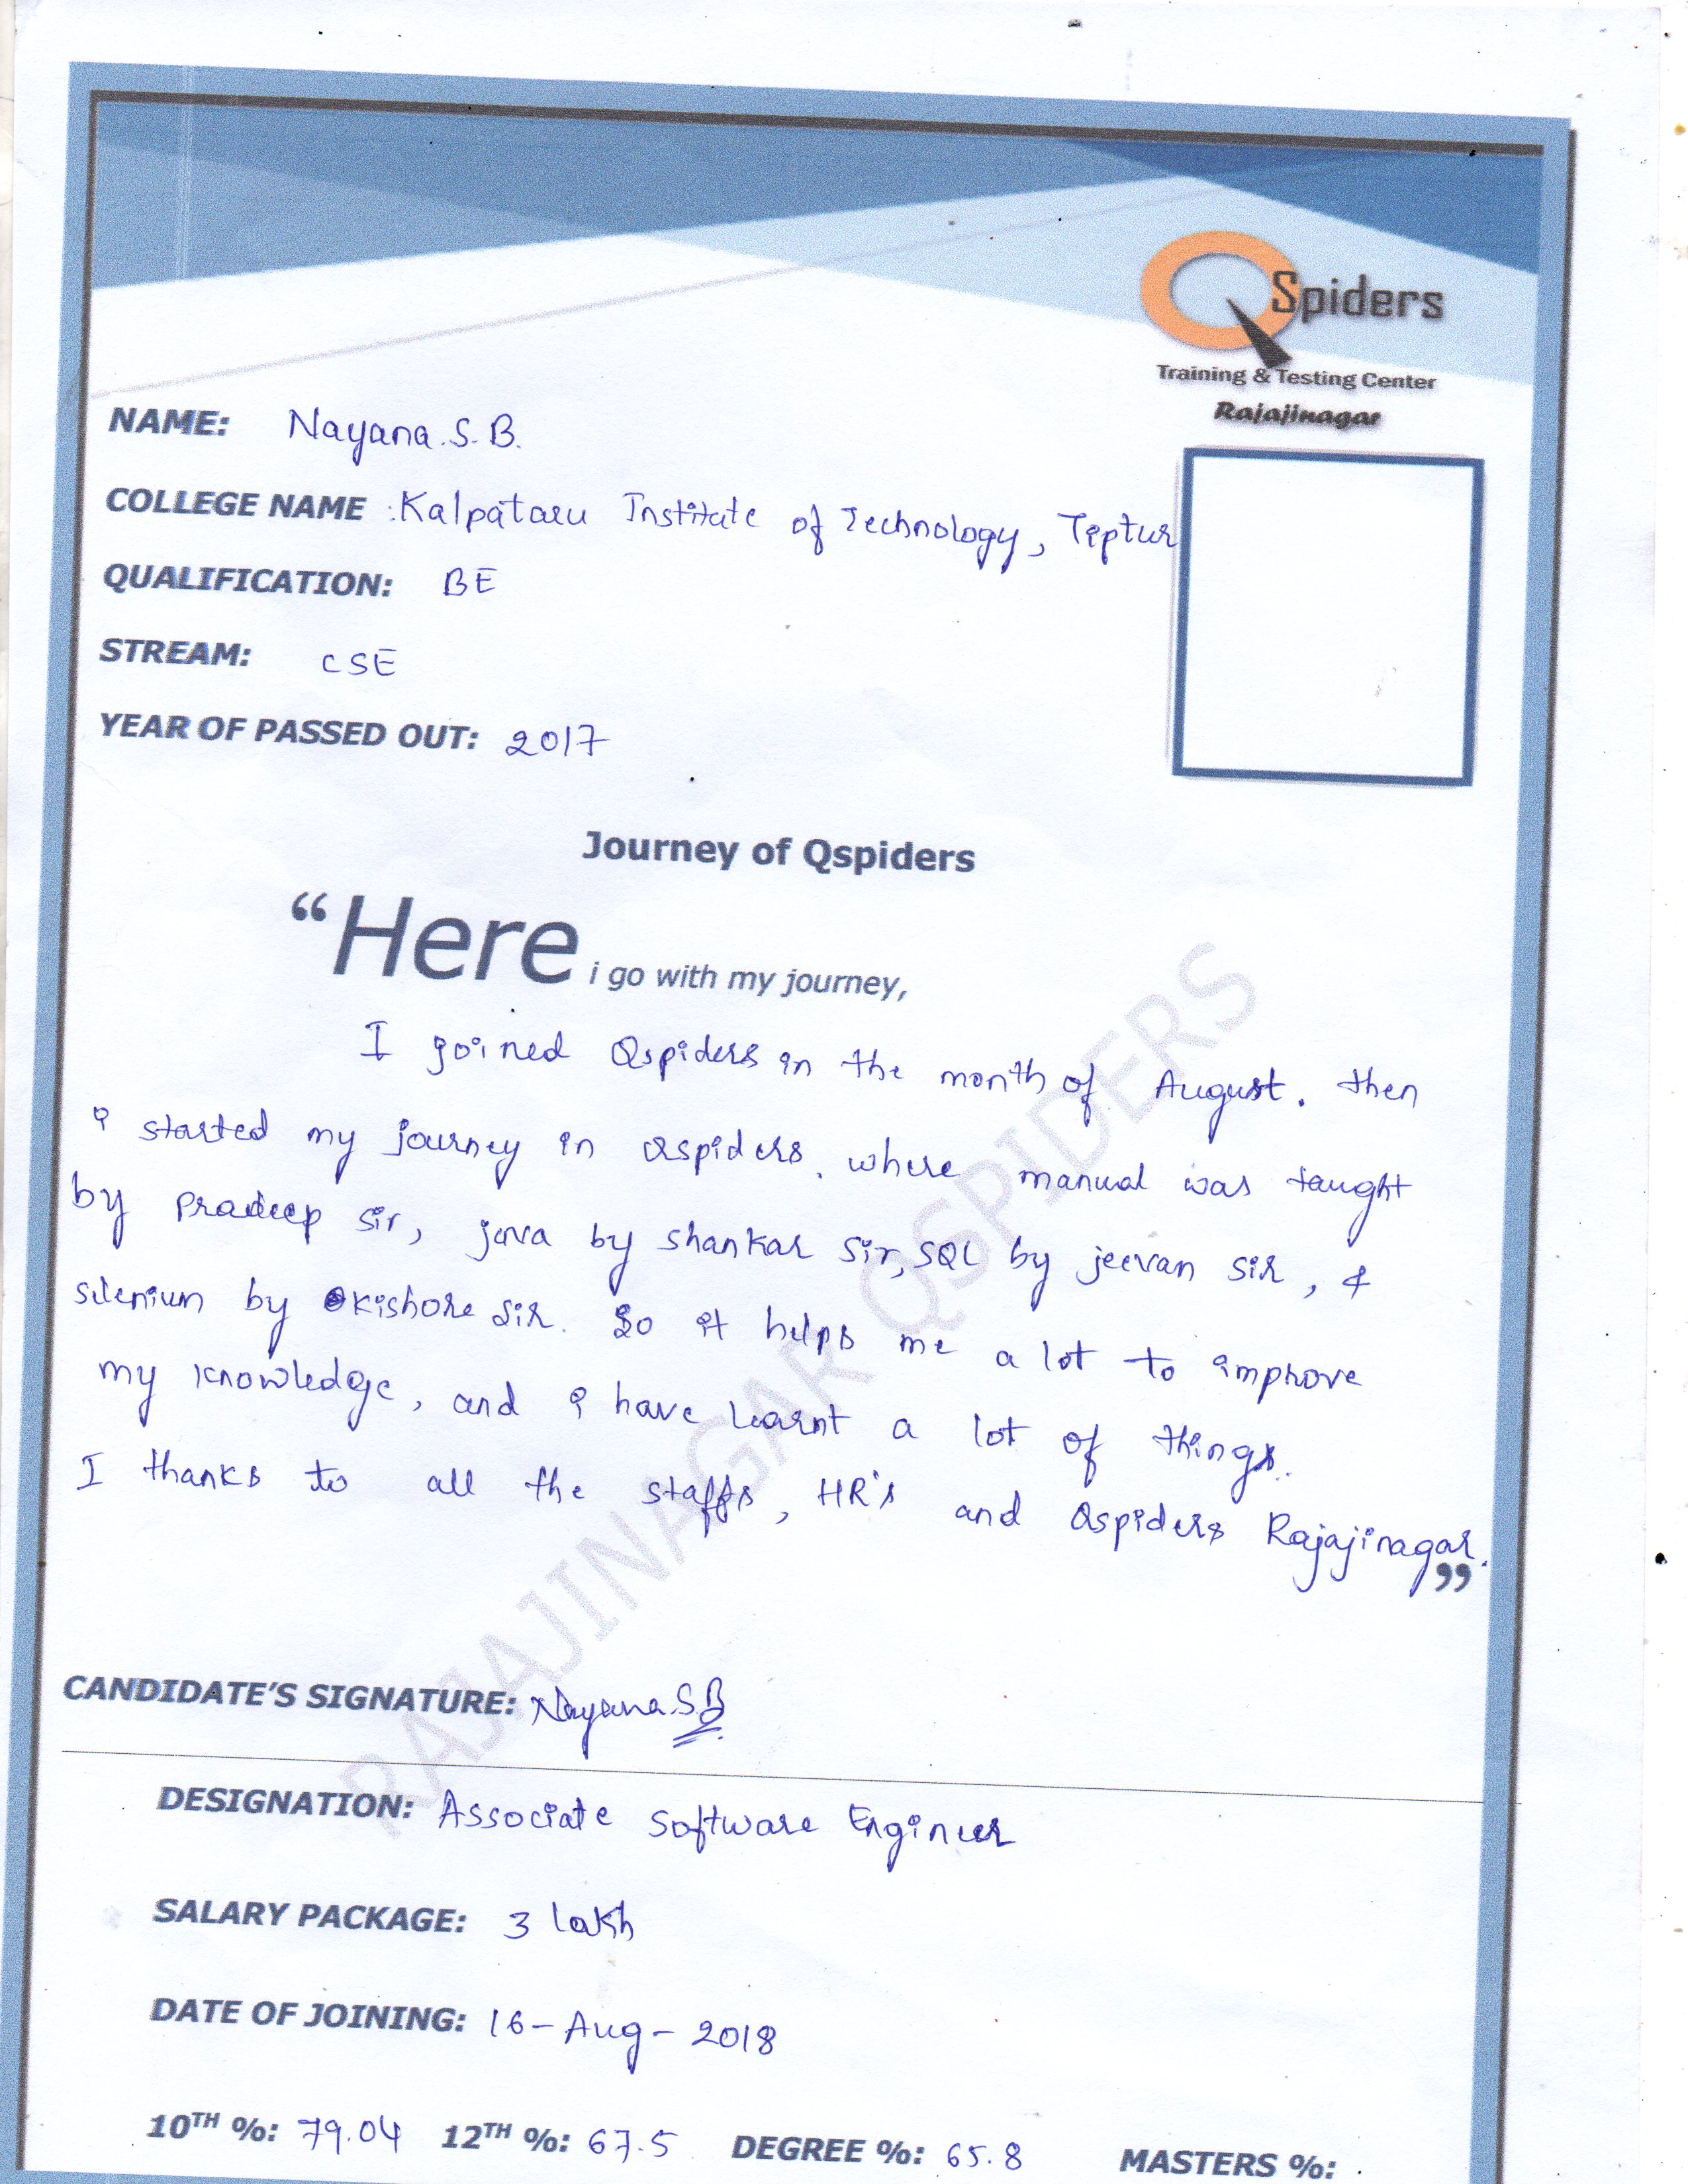 QSpiders
Training & Testing Center
Rajajinagar
NAME: Nayana.S.B.
COLLEGE NAME :Kalpataru Institute of Technology, Tiptur
QUALIFICATION: BE
STREAM: CSE
YEAR OF PASSED OUT: 2017
Journey of Qspiders
“Here i go with my journey,
I joined Qspiders in the month of August. then
i started my journey in Qspiders. where manual was taught
by Pradeep sir, java by shankar sir, SQL by jeevan sir, &
silenium by kishore sir. So it helps me a lot to improve
my knowledge, and i have learnt a lot of things.
I thanks to all the staffs, HR's and Qspiders Rajajinagar.
”
RAJAJINAGAR QSPIDERS
CANDIDATE’S SIGNATURE: Nayana.S.B
DESIGNATION: Associate Software Engineer
SALARY PACKAGE: 3 lakh
DATE OF JOINING: 16-Aug-2018
10TH %: 79.04 12TH %: 67.5 DEGREE %: 65.8 MASTERS %: